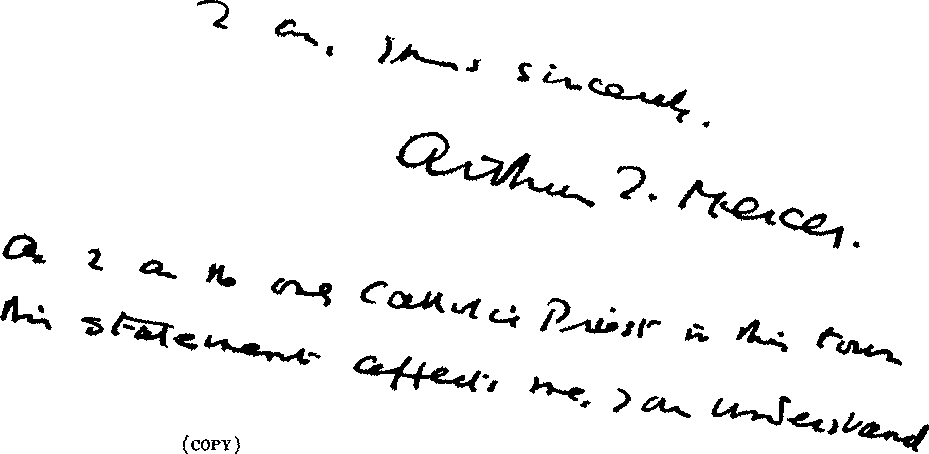 I am, yours sincerely.
Arthur J. Mercer.
As I am the only Catholic Priest in this town
this statement affects me. I am understand
(COPY)